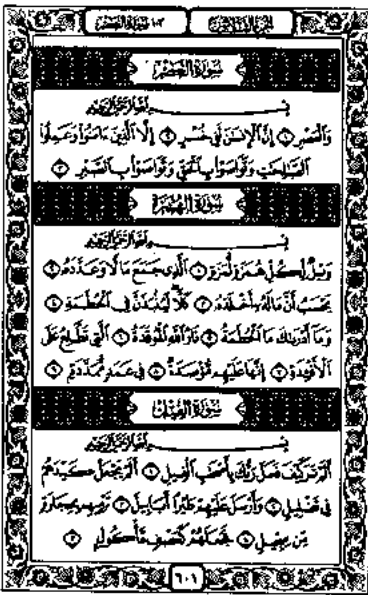 الجزء الثلاثون ١٠٣ سورة العصر
سورة العصر
بسم الله الرحمن الرحيم
وَالْعَصْرِ ١ إِنَّ الْإِنسَٰنَ لَفِى خُسْرٍ ٢ إِلَّا الَّذِينَ ءَامَنُوا۟ وَعَمِلُوا۟
الصَّٰلِحَٰتِ وَتَوَاصَوْا۟ بِالْحَقِّ وَتَوَاصَوْا۟ بِالصَّبْرِ ٣
سورة الهمزة
بسم الله الرحمن الرحيم
وَيْلٌ لِّكُلِّ هُمَزَةٍ لُّمَزَةٍ ١ الَّذِى جَمَعَ مَالًا وَعَدَّدَهُۥ ٢
يَحْسَبُ أَنَّ مَالَهُۥٓ أَخْلَدَهُۥ ٣ كَلَّا لَيُنۢبَذَنَّ فِى الْحُطَمَةِ ٤
وَمَآ أَدْرَىٰكَ مَا الْحُطَمَةُ ٥ نَارُ اللَّهِ الْمُوقَدَةُ ٦ الَّتِى تَطَّلِعُ عَلَى
الْأَفْـِٔدَةِ ٧ إِنَّهَا عَلَيْهِم مُّؤْصَدَةٌ ٨ فِى عَمَدٍ مُّمَدَّدَةٍۭ ٩
سورة الفيل
بسم الله الرحمن الرحيم
أَلَمْ تَرَ كَيْفَ فَعَلَ رَبُّكَ بِأَصْحَٰبِ الْفِيلِ ١ أَلَمْ يَجْعَلْ كَيْدَهُمْ
فِى تَضْلِيلٍ ٢ وَأَرْسَلَ عَلَيْهِمْ طَيْرًا أَبَابِيلَ ٣ تَرْمِيهِم بِحِجَارَةٍ
مِّن سِجِّيلٍ ٤ فَجَعَلَهُمْ كَعَصْفٍ مَّأْكُولٍۭ ٥
٦٠١